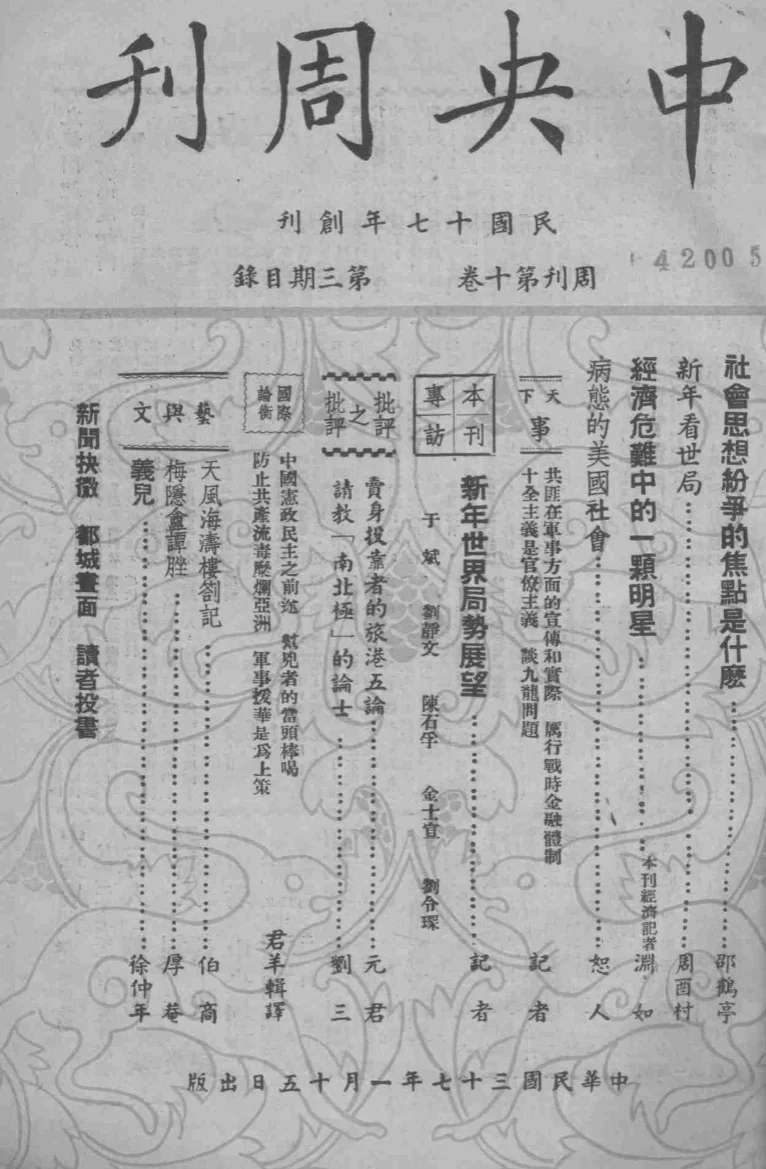 中央周刊
民國十七年創刊
周刊第十卷 第三期目錄
42005
社會思想紛爭的焦點是什麽 邵鶴亭
新年看世局 周酉村
經濟危難中的一顆明星 本刊經濟記者 淵如
病態的美國社會 恕人
天下事
共匪在軍事方面的宣傳和實際 厲行戰時金融體制
十全主義是官僚主義 談九龍問題
記者
本刊專訪
新年世界局勢展望 記者
于斌 劉靜文 陳石孚 金士宣 劉令琛
批評之批評
賣身投靠者的旅港五論 元君
請教「南北極」的論士 劉三
國際論衡
中國憲政民主之前途 幫兇者的當頭棒喝
防止共產流毒糜爛亞洲 軍事援華是爲上策
君羊輯譯
藝與文
天風海濤樓劄記 伯商
梅隱盫譚脞 厚菴
義兒 徐仲年
新聞抉微 都城畫面 讀者投書
中華民國三十七年一月十五日出版